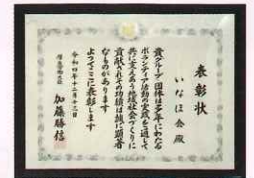 表彰状
いなほ会殿
貴グループ・団体は多年にわたる
ボランティア活動の実践を通して
共に支えあう地域社会づくりに
貢献されその功績は誠に顕著
なものがあります
よってここに表彰します
令和四年十二月十三日
厚生労働大臣 加藤勝信